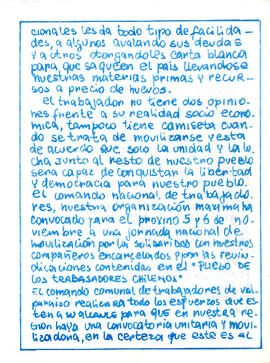 cionales les da todo tipo de facilida-
des, a algunos avalando sus deudas
y a otros otorgandoles carta blanca
para que saqueen el pais llevandose
nuestras materias primas y recur-
sos a precio de huevos.
El trabajador no tiene dos opinio-
nes frente a su realidad socio econo-
mica, tampoco tiene camiseta cuan-
do se trata de movilizarse y esta
de acuerdo que solo la unidad y la lu-
cha junto al resto de nuestro pueblo
sera capaz de conquistar la libertad
y democracia para nuestro pueblo.
El comando nacional de trabajado-
res, nuestra organización maxima ha
convocado para el proximo 5 y 6 de no-
viembre a una jornada nacional de
movilización por la solidaridad con nuestros
compañeros encarcelados y por las reivin-
dicaciones contenidas en el "PLIEGO DE
LOS TRABAJADORES CHILENOS"
El comando comunal de trabajadores de val-
paraiso realizara todo los esfuerzos que es-
ten a su alcance para que en nuestra re-
gion haya una convocatoria unitaria y movi-
lizadora, en la certeza que este es al